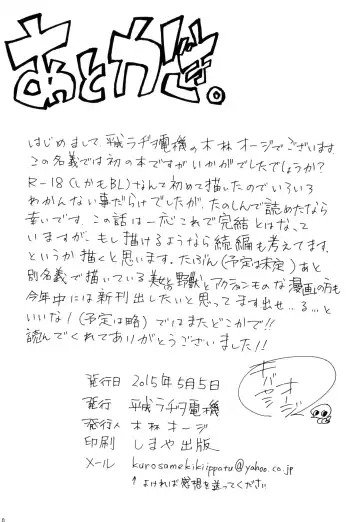 あとがき。
はじめまして、平成ラヂヲ電機の木林オージでございます
この名義では初の本ですがいかがでしたでしょうか?
R-18(しかもBL)なんて初めて描いたのでいろいろ
わかんない事だらけでしたが、たのしんで読めたなら
幸いです。この話は一応これで完結とはなって
いますが、もし描けるようなら続編も考えてます。
というか描くと思います。たぶん(予定は未定)あと
別名義で描いている美女と野獣とアクションものな漫画の方も
今年中には新刊出したいと思ってます出せ..る...と
いいな!(予定は略)ではまたどこかで!!
読んでくれてありがとうございました!!
キバヤシ
オージ
発行日 2015年5月5日
発行 平成ラヂヲ電機
発行人 木林オージ
印刷 しまや出版
メール kurosamekikiippatu@yahoo.co.jp
↑よければ感想を送ってください